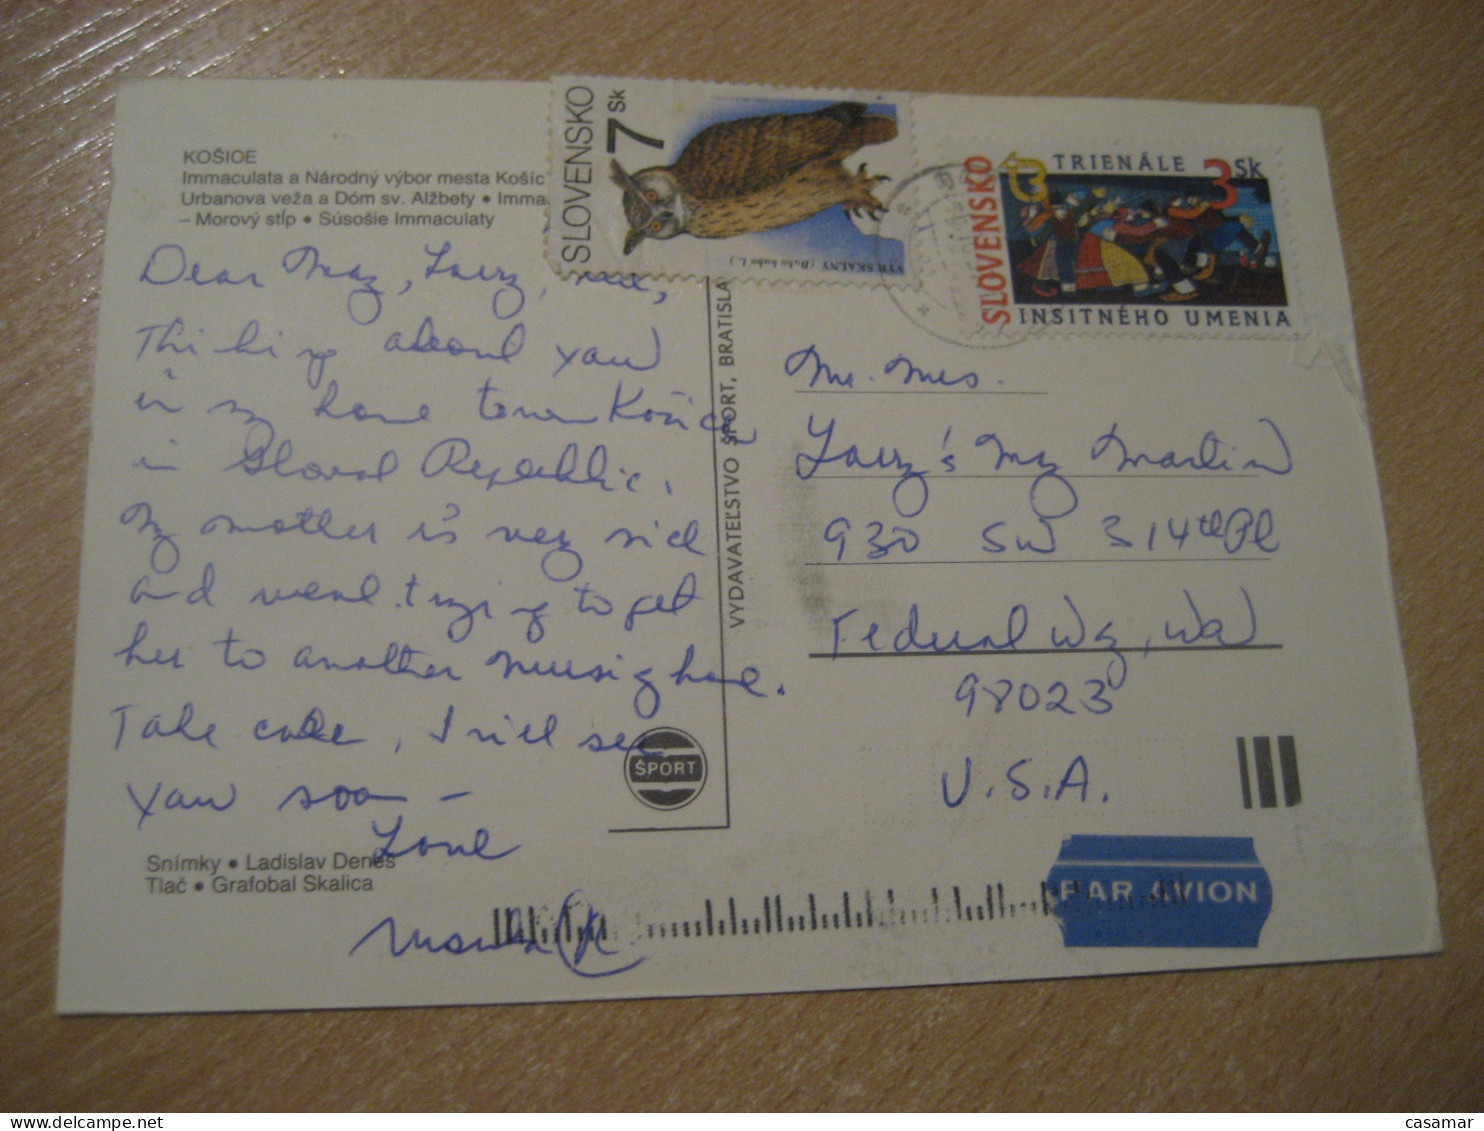 KOŠICE
Immaculata a Národný výbor mesta Košíc
Urbanova veža a Dóm sv. Alžbety • Imma
– Morový stĺp • Súsošie Immaculaty
SLOVENSKO
7 Sk
VÝR SKALNÝ (Bubo bubo L.)
SLOVENSKO
TRIENÁLE 3 Sk
INSITNÉHO UMENIA
Dear May, Larry,
Thinking about you
in my home town Košice
in Slovak Republic.
My mother is very sick
and were trying to get
her to another nursing home.
Take care, I will see
you soon –
Love
VYDAVATEĽSTVO ŠPORT, BRATISLA
ŠPORT
Mr. Mrs.
Larry & May Martin
930 SW 314th Pl
Federal Wy, Wa
98023
U.S.A.
Snímky • Ladislav Deneš
Tlač • Grafobal Skalica
PAR AVION
casamar